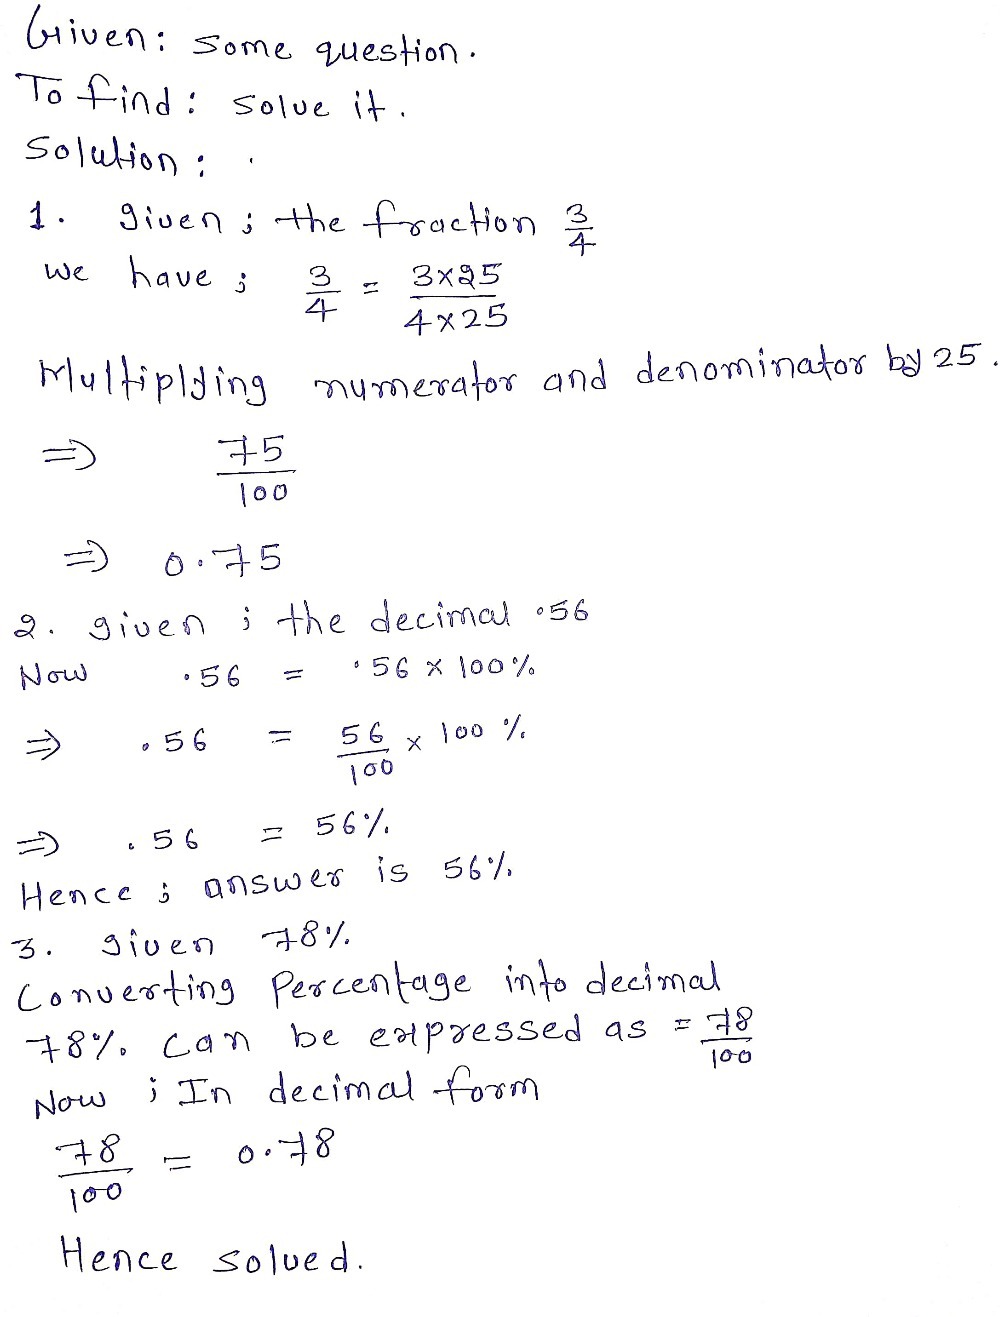 Given: some question.
To find: solve it.
Solution:
1. given; the fraction 3/4
we have; 3/4 = 3×25/4×25
Multiplying numerator and denominator by 25.
⇒ 75/100
⇒ 0.75
2. given; the decimal .56
Now .56 = .56 × 100%
⇒ .56 = 56/100 × 100 %
⇒ .56 = 56%
Hence; answer is 56%
3. given 78%.
Converting Percentage into decimal
78%. can be expressed as = 78/100
Now; In decimal form
78/100 = 0.78
Hence solved.